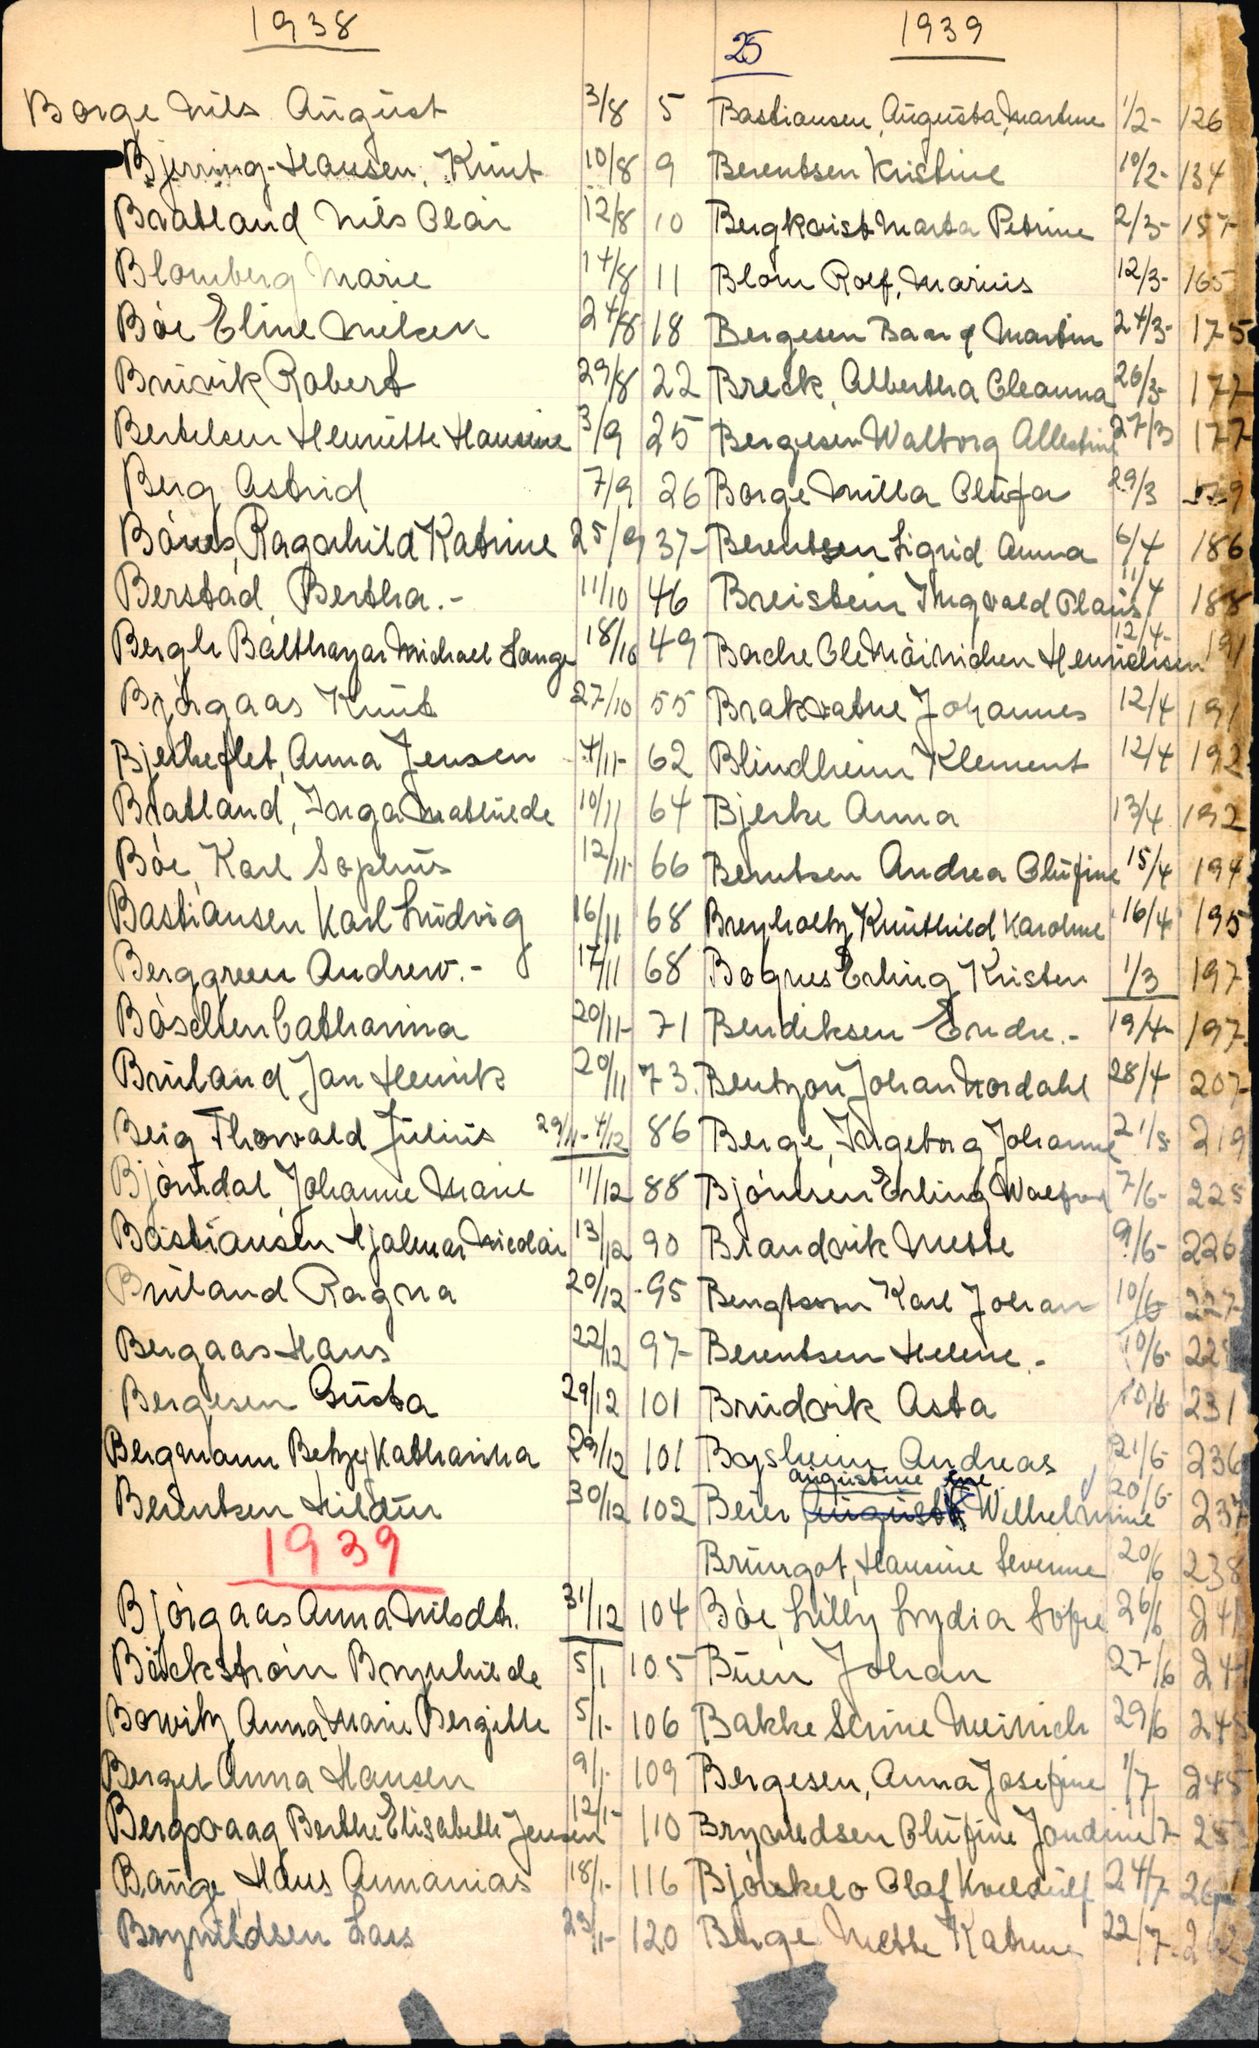 1938
Borge Nils August 3/8 5
Bjerring-Hansen, Knut 10/8 9
Bratland Nils Olai 12/8 10
Blomberg Marie 14/8 11
Bóe Eline Nilsen 24/8 18
Bruvik Robert 29/8 22
Bertelsen Henriette Hansine 3/9 25
Berg Astrid 7/9 26
Bónes Ragnhild Katrine 25/9 37
Berstad Bertha.- 11/10 46
Bergh Balthazar Michael Lange 18/10 49
Bjórgaas Knut 27/10 55
Anna Jensen 4/11- 62
Bratland, Inga Mathilde 10/11 64
Bóe Karl Sophus 12/11- 66
Bastiansen Karl Ludvig 16/11 68
Berggreen Andrew.- 17/11 68
Catharina 20/11- 71
Bruland Jan Henrik 20/11 73.
Berg Thorvald Julius 29/11-4/12 86
Bjórndal Johanne Marie 11/12 88
Bastiansen Hjalmar Nicolai 13/12 90
Bruland Ragna 20/12 95
Bergaas Hans 22/12 97
Bergesen Gusta 29/12 101
Bergmann Betzy Katharina 29/12 101
Berentsen Hildur 30/12 102
1939
Bjórgaas Anna Nilsdtr. 31/12 104
Bäckstróm Brynhilde 5/1 105
Bowitz Anna Marie Bergitte 5/1- 106
Berget Anna Hansen 9/1- 109
Berthe Elisabeth Jensen 12/1- 110
Bauge Hans Annanias 18/1- 116
Brynildsen Lars 23/1- 120
25
1939
Bastiansen, Augusta, Martine 1/2- 126
Berentsen Kristine 10/2- 134
Bergkvist Marta Petrine 2/3- 157
Blom Rolf, Marius 12/3- 165
Bergesen Martin 24/3- 175
Breck, Albertha Oleanna 26/3- 177
Bergesen Walborg 27/3 177
Borge Milla Olufa 29/3
Berentsen Sigrid Anna 6/4 186
Breistein Ingvald Olaus 11/4 188
Borche Ole Henrichsen 12/4- 191
Brakvatne Johannes 12/4 191
Blindheim Klement 12/4 192
Bjerke Anna 13/4 192
Berntsen Andrea Olufine 15/4 194
Breyholtz Knuthild Karoline 16/4 195
Bognes Erling Kristen 1/3 197
Bendiksen Endre.- 19/4- 197
Bentzon Johan Nordahl 28/4 207
Berge, Ingeborg Johanne 21/5- 219
Bjórnsen Erling 7/6- 225
Brandvik Mette 9/6- 226
Bengtsson Karl Johan 10/6 227
Berentsen Helene.- 10/6-
Brudvik Asta 231
Andreas 21/6- 236
augustine ine
Beier August Wilhelmine 20/6- 237
Brungot, Hansine Severine 20/6 238
Bóe, Lilly Lydia Sofie 26/6
Buen Johan 27/6
Bakke Serine Meinich 29/6 245
Bergesen, Anna Josefine 1/7 245
Olufine
Olaf 24/7
Berge Mette Katrine 22/7- 262